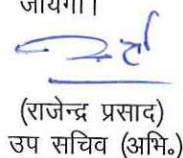 जायेगा।
(राजेन्द्र प्रसाद)
उप सचिव (अभि०)